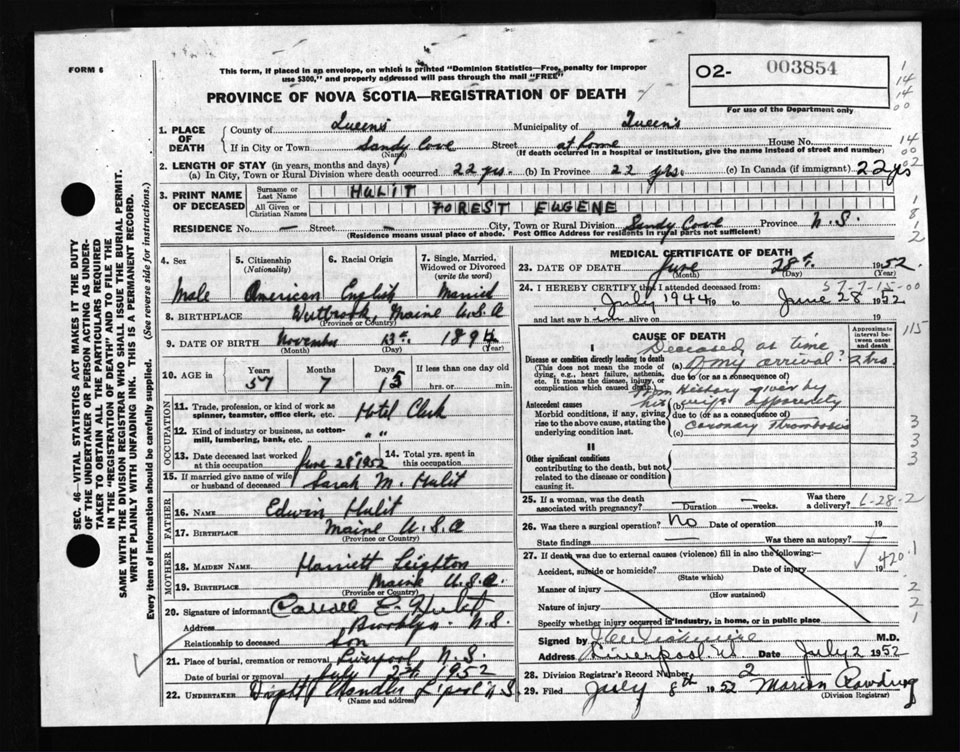 FORM 6
This form, if placed in an envelope, on which is printed "Dominion Statistics—Free, penalty for improper
use $300," and properly addressed will pass through the mail "FREE"
02- 003854
For use of the Department only
PROVINCE OF NOVA SCOTIA—REGISTRATION OF DEATH
1. PLACE OF DEATH
County of Queens Municipality of Queens
If in City or Town Sandy Cove Street at home House No.
(Name) (If death occurred in a hospital or institution, give the name instead of street and number)
2. LENGTH OF STAY (in years, months and days)
(a) In City, Town or Rural Division where death occurred 22 yrs. (b) In Province 22 yrs. (c) In Canada (if immigrant) 22 yrs
3. PRINT NAME OF DECEASED
Surname or Last Name HULIT
All Given or Christian Names FOREST EUGENE
RESIDENCE No. — Street — City, Town or Rural Division Sandy Cove Province N.S.
(Residence means usual place of abode. Post Office Address for residents in rural parts not sufficient)
4. Sex Male
5. Citizenship (Nationality) American
6. Racial Origin English
7. Single, Married, Widowed or Divorced (write the word) Married
8. BIRTHPLACE Maine U.S.A
(Province or Country)
9. DATE OF BIRTH November 13th 1894
(Month) (Day) (Year)
10. AGE in Years 57 Months 7 Days 15 If less than one day hrs. or min.
OCCUPATION
11. Trade, profession, or kind of work as spinner, teamster, office clerk, etc. Hotel Clerk
12. Kind of industry or business, as cotton-mill, lumbering, bank, etc. " "
13. Date deceased last worked at this occupation June 28 1952
14. Total yrs. spent in this occupation
15. If married give name of wife or husband of deceased Sarah M. Hulit
FATHER
16. NAME Edwin Hulit
17. BIRTHPLACE Maine U.S.A
(Province or Country)
MOTHER
18. MAIDEN NAME Harriett Leighton
19. BIRTHPLACE Maine U.S.A.
(Province or Country)
20. Signature of informant E. Hulit
Address Brooklyn N.S.
Relationship to deceased Son
21. Place of burial, cremation or removal Liverpool N.S.
Date of burial or removal July 1952
22. UNDERTAKER Chandler L'pool N.S.
(Name and address)
MEDICAL CERTIFICATE OF DEATH
23. DATE OF DEATH June 28th 1952
(Month) (Day) (Year)
24. I HEREBY CERTIFY that I attended deceased from:
July 1944 19 to June 28 1952
and last saw him alive on 19
CAUSE OF DEATH
Approximate interval between onset and death
I
Disease or condition directly leading to death
(This does not mean the mode of dying, e.g., heart failure, asthenia, etc. It means the disease, injury, or complication which caused death.)
(a) Deceased at time of my arrival? 2 hrs.
due to (or as a consequence of)
Antecedent causes
Morbid conditions, if any, giving rise to the above cause, stating the underlying condition last.
From History given by
(b) his wife apparently
due to (or as a consequence of)
(c) Coronary Thrombosis
II
Other significant conditions
contributing to the death, but not related to the disease or condition causing it.
25. If a woman, was the death associated with pregnancy? — Duration — weeks. Was there a delivery?
26. Was there a surgical operation? No Date of operation 19
State findings — Was there an autopsy?
27. If death was due to external causes (violence) fill in also the following:—
Accident, suicide or homicide? Date of injury 19
(State which)
Manner of injury
(How sustained)
Nature of injury
Specify whether injury occurred in industry, in home, or in public place
Signed by M.D.
Address Liverpool Date July 2 1952
28. Division Registrar's Record Number 2
29. Filed July 8th 1952 Marion
(Division Registrar)
SEC. 46—VITAL STATISTICS ACT MAKES IT THE DUTY
OF THE UNDERTAKER OR PERSON ACTING AS UNDER-
TAKER TO OBTAIN ALL THE PARTICULARS REQUIRED
IN THE "REGISTRATION OF DEATH" AND TO FILE THE
SAME WITH THE DIVISION REGISTRAR WHO SHALL ISSUE THE BURIAL PERMIT.
WRITE PLAINLY WITH UNFADING INK. THIS IS A PERMANENT RECORD.
Every item of information should be carefully supplied. (See reverse side for instructions.)